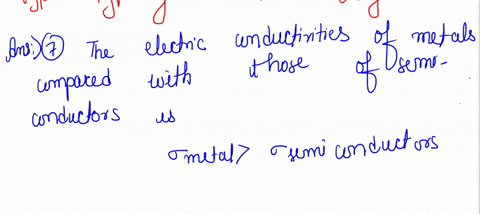 Ans:) ⑦ The electric conductivities of metals
compared with those of semi-
conductors is
σmetal > σsemi conductors